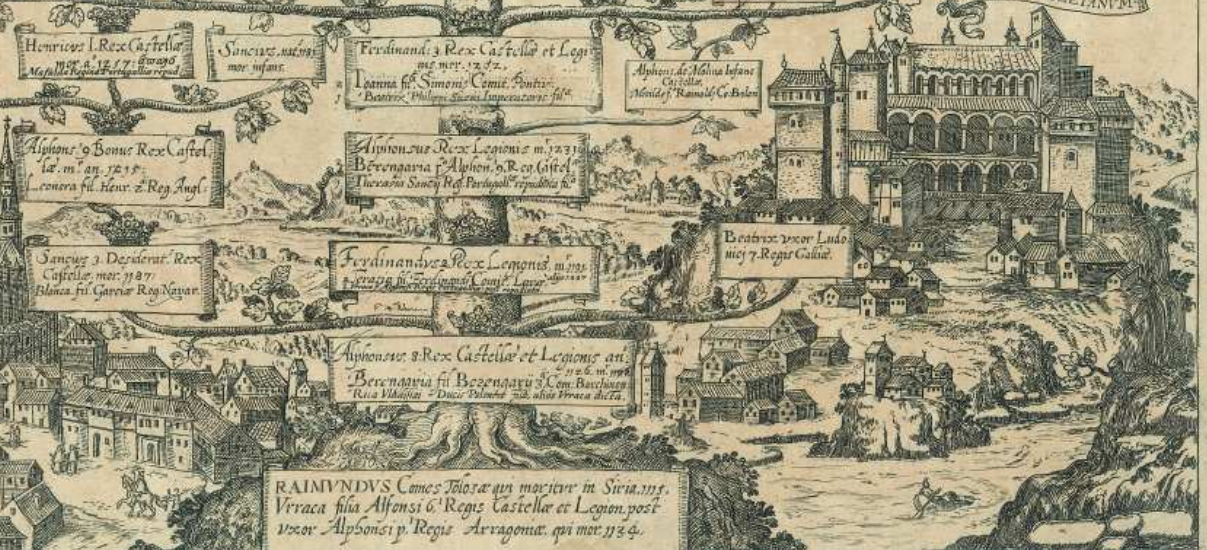 ETANVM
Henricvs I. Rex Castellæ
mor. a. 1217.
Mafalda Regina Portugalliæ repud.
Sancivs, nat.
mor. infans.
Ferdinand: 3. Rex Castellæ et Legi
nis, mor. 1252.
Ioanna fil. Simonis Comit. Pontiv
Beatrix Philippi Suevi Imperatoris fil.
Alphons. de Molina Infans
Castellæ,
Co.
Alphons 9 Bonus Rex Castel,
læ. m. an. 1215.
Leonora fil. Henr. 2. Reg. Angl.
Alphonsus Rex Legionis m. 1231
Berengaria f. Alphon. 9. Reg. Castel.
Theresia Sancij Reg. Portugall. repudiata fil.
Sancius 3. Desiderat. Rex
Castellæ, mor. 1187.
Blanca fil. Garciæ Reg. Navar.
Ferdinandvs 2. Rex Legionis,
Vrraca fil. Ferdinandi Comit.
Beatrix vxor Ludo
uici 7. Regis Galliæ.
Alphonsvs 8. Rex Castellæ et Legionis an.
1126. m.
Berengaria fil Berengarij 3. Com. Barchinon
Rica Vladislai Ducis Poloniæ fil. aliis Vrraca dicta.
RAIMVNDVS Comes Tolosæ qui moritvr in Siria. 1115.
Vrraca filia Alfonsi 6. Regis Castellæ et Legion. post
vxor Alphonsi p. Regis Arragoniæ. qui mor. 1134.